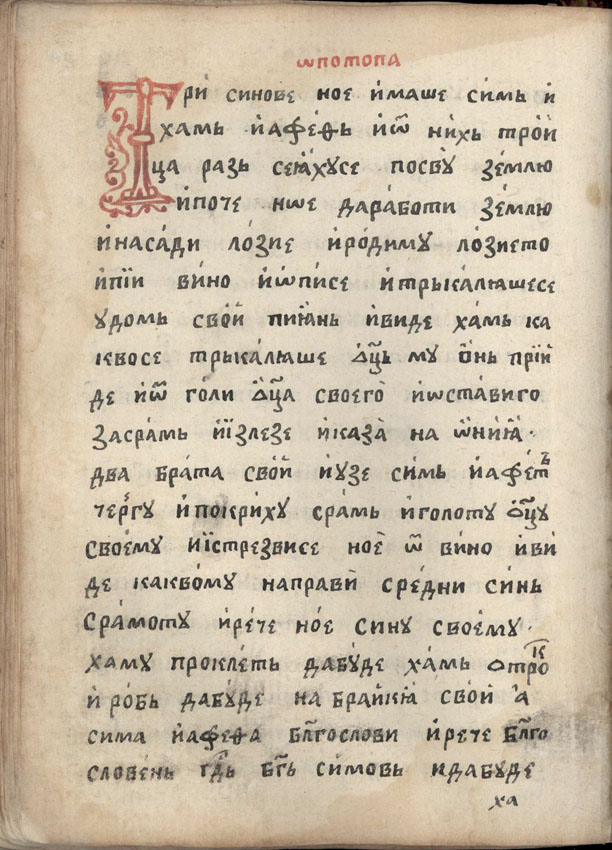 ѡпотопа
Три́ синове ное и҆маше симь и҆
хамь и҆афеѳь и҆ѿ нихь трои҆
ца разь сеꙗ҆хусе посвꙋ̀ землю
и҆поте нѡе даработи землю
и҆насади лозїе и҆родимꙋ лозїето
и҆пїи вино и҆ѡписе и҆трькалꙗшесе
ꙋдомь свои҆ пиꙗ҆нь и҆виде хамь ка
квосе трькалꙗше ѻ҆ць мꙋ ѻ҆нь прїи҆
де и҆ѿ голи ѻ҆ца своего и҆ѡставиго
засрамь и҆излезе и҆каза̀ на ѡ҆ниꙗ҆
два брата свои҆ и҆узе симь и҆афеть
тергу и҆покриху срамь и҆голоту ѻ҆цꙋ
своемꙋ и҆истрезвисе ное ѿ вино и҆ви
де каквомꙋ направи̇ средни синь
срамоту и҆рече ное синꙋ своемꙋ
хамꙋ проклеть дабꙋде хамь ѻтрок
и҆ робь дабꙋде на браикꙗ свои҆ а҆
сима и҆афеѳа блг҃ослови и҆рече блг҃о
словень гдь бг҃ь симовь и дабꙋде
ха